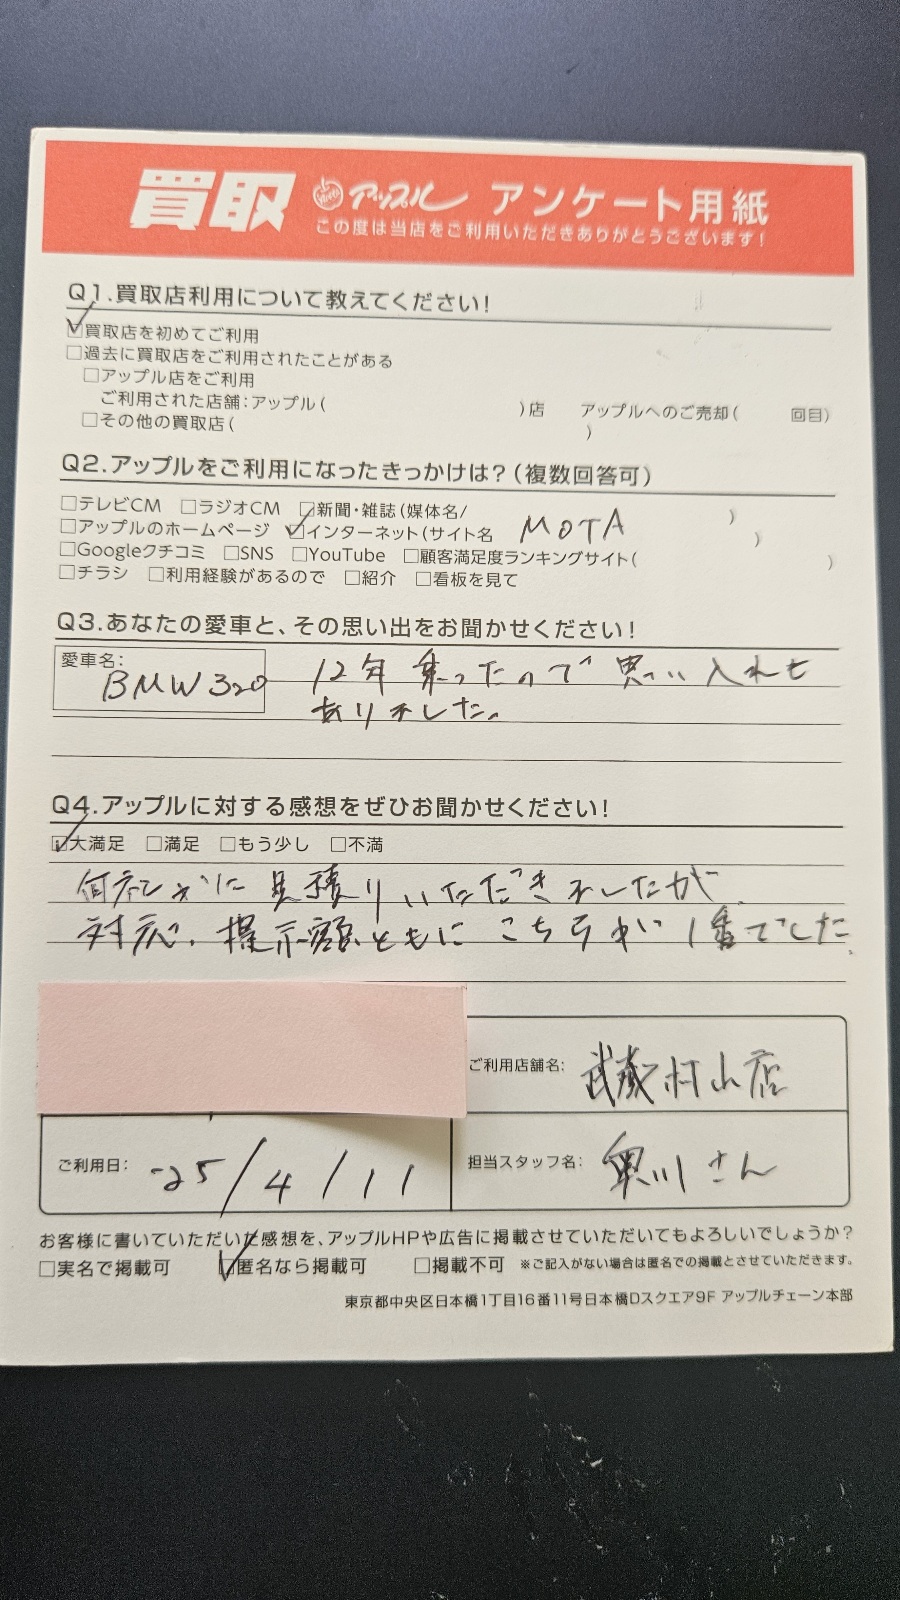 買取 アップル アンケート用紙
この度は当店をご利用いただきありがとうございます!
Q1.買取店利用について教えてください!
☑買取店を初めてご利用
□過去に買取店をご利用されたことがある
□アップル店をご利用
ご利用された店舗:アップル( )店 アップルへのご売却( 回目)
□その他の買取店( )
Q2.アップルをご利用になったきっかけは?(複数回答可)
□テレビCM □ラジオCM □新聞・雑誌(媒体名/ )
□アップルのホームページ ☑インターネット(サイト名 MOTA )
□Googleクチコミ □SNS □YouTube □顧客満足度ランキングサイト( )
□チラシ □利用経験があるので □紹介 □看板を見て
Q3.あなたの愛車と、その思い出をお聞かせください!
愛車名:
BMW320 12年乗ったので思い入れも
ありました。
Q4.アップルに対する感想をぜひお聞かせください!
☑大満足 □満足 □もう少し □不満
何社かに見積りいただきましたが、
対応、提示額ともにこちらが1番でした。
ご利用店舗名: 武蔵村山店
ご利用日: '25/4/11 担当スタッフ名: 奥川さん
お客様に書いていただいた感想を、アップルHPや広告に掲載させていただいてもよろしいでしょうか?
□実名で掲載可 ☑匿名なら掲載可 □掲載不可 ※ご記入がない場合は匿名での掲載とさせていただきます。
東京都中央区日本橋1丁目16番11号日本橋Dスクエア9F アップルチェーン本部